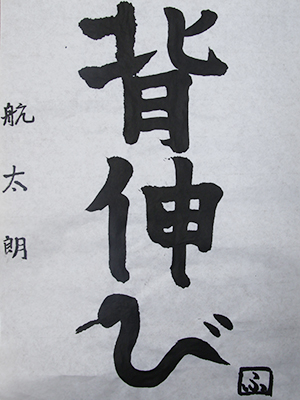 背伸び
航太朗
ふ